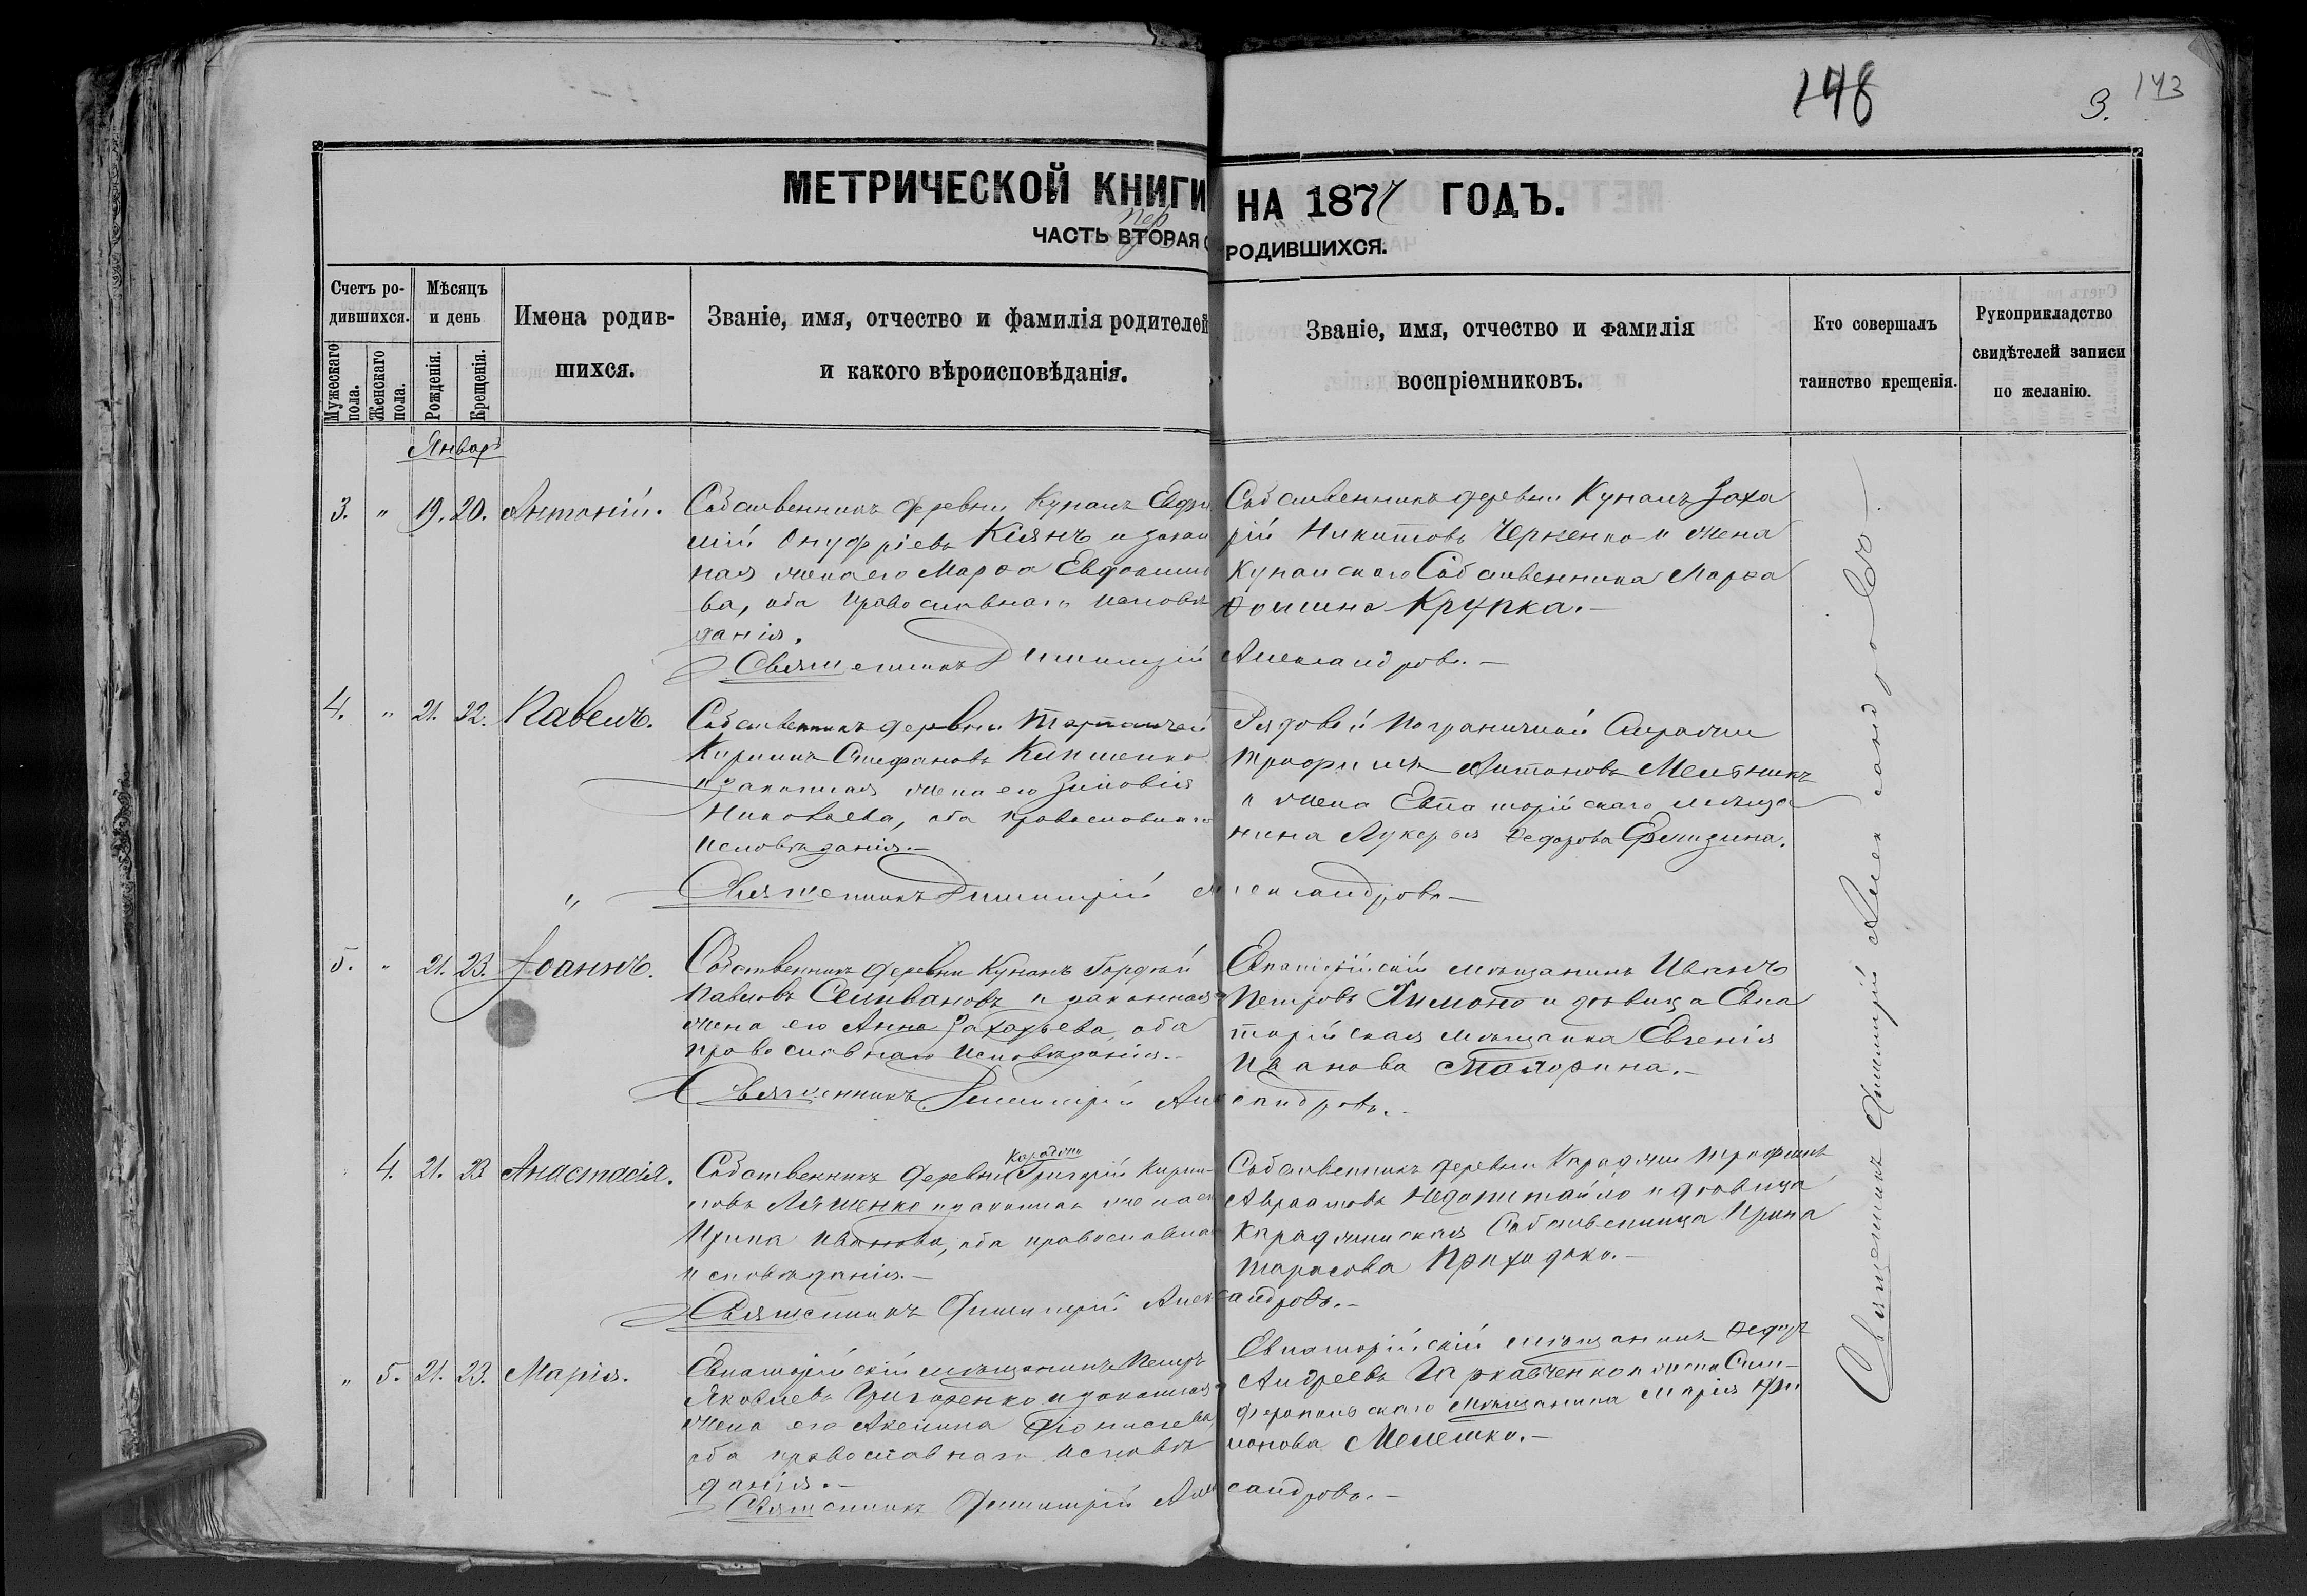 148
3.
143
МЕТРИЧЕСКОЙ КНИГИ НА 1877 ГОДЪ.
пер
ЧАСТЬ ВТОРАЯ РОДИВШИХСЯ.
Счетъ ро-
дившихся.
Мужескаго пола.
Женскаго пола.
Мѣсяцъ
и день
Рожденія.
Крещенія.
Имена родив-
шихся.
Званіе, имя, отчество и фамилія родителей
и какого вѣроисповѣданія.
Званіе, имя, отчество и фамилія
воспріемниковъ.
Кто совершалъ
таинство крещенія.
Рукоприкладство
свидѣтелей записи
по желанію.
Январь
3. " 19. 20. Антоній.
Собственникъ деревни Кунанъ Евфи
мій Онуфріевъ Кіянъ и закон
ная жена его Марѳа Евдокимо
ва, оба православнаго исповѣ
данія.
Собственникъ деревни Кунанъ Заха
рій Никитовъ Черненко и жена
Кунанскаго Собственника Марѳа
Ѳомина Крупка.
Священникъ Димитрій Александровъ.
4. " 21. 22. Павелъ.
Собственникъ деревни
Кирилъ Стефановъ
и законная жена его Зиновія
Николаева, оба православнаго
исповѣданія.
Рядовой Пограничной Стражи
Трофимъ Антоновъ Мельникъ
и жена Евпаторійскаго мѣща
нина Лукерья Ѳедорова
Священникъ Димитрій Александровъ
5. " 21. 23. Іоаннъ.
Собственникъ деревни Кунанъ Гордѣй
Павловъ Селивановъ и законная
жена его Анна Захарьева, оба
православнаго исповѣданія.
Евпаторійскій мѣщанинъ Иванъ
Петровъ и дѣвица Евпа
торійская мѣщанка Евгенія
Иванова
Священникъ Димитрій Александровъ.
4. 21. 23 Анастасія.
Караджи
Собственникъ деревни Григорій Кирил-
ловъ Ляшенко и законная жена его
Ирина Иванова, оба православнаго
исповѣданія.
Собственникъ деревни Караджи Трофимъ
Авраамовъ Недопитайло и дѣвица
Караджинская Собственница Ирина
Тарасова Приходько.
Священникъ Димитрій Александровъ.
" 5. 21. 23. Марія.
Евпаторійскій мѣщанинъ Петръ
Яковлевъ Григоренко и законная
жена его Акелина Діонисьева,
оба православнаго исповѣ
данія.
Евпаторійскій мѣщанинъ Ѳедоръ
Андреевъ и жена Сим-
феропольскаго мѣщанина Марія
Мелешко.
Священникъ Димитрій Александровъ.
Священникъ Димитрій Александровъ